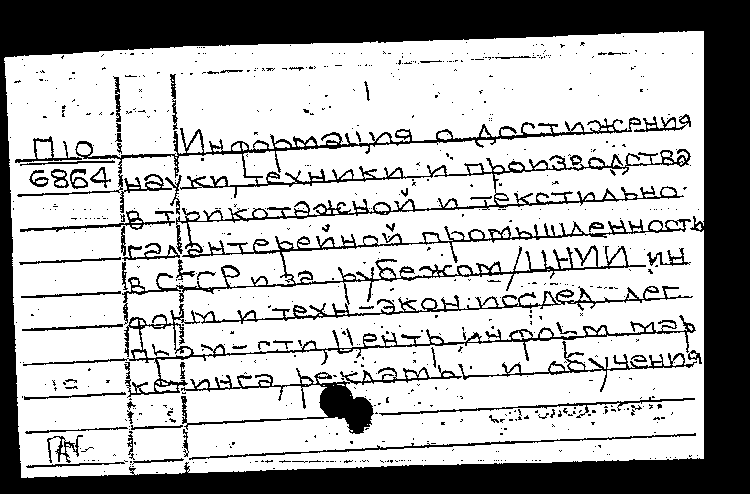 1
П10 Информация о достижения
6864 науки, техники и производства
в трикотажной и текстильно-
галантерейной промышленность
в СССР и за рубежом/ЦНИИ ин
форм и техн-экон. исслед. лег.
пром-сти, Центр информ мар
кетинга, рекламы и обучения